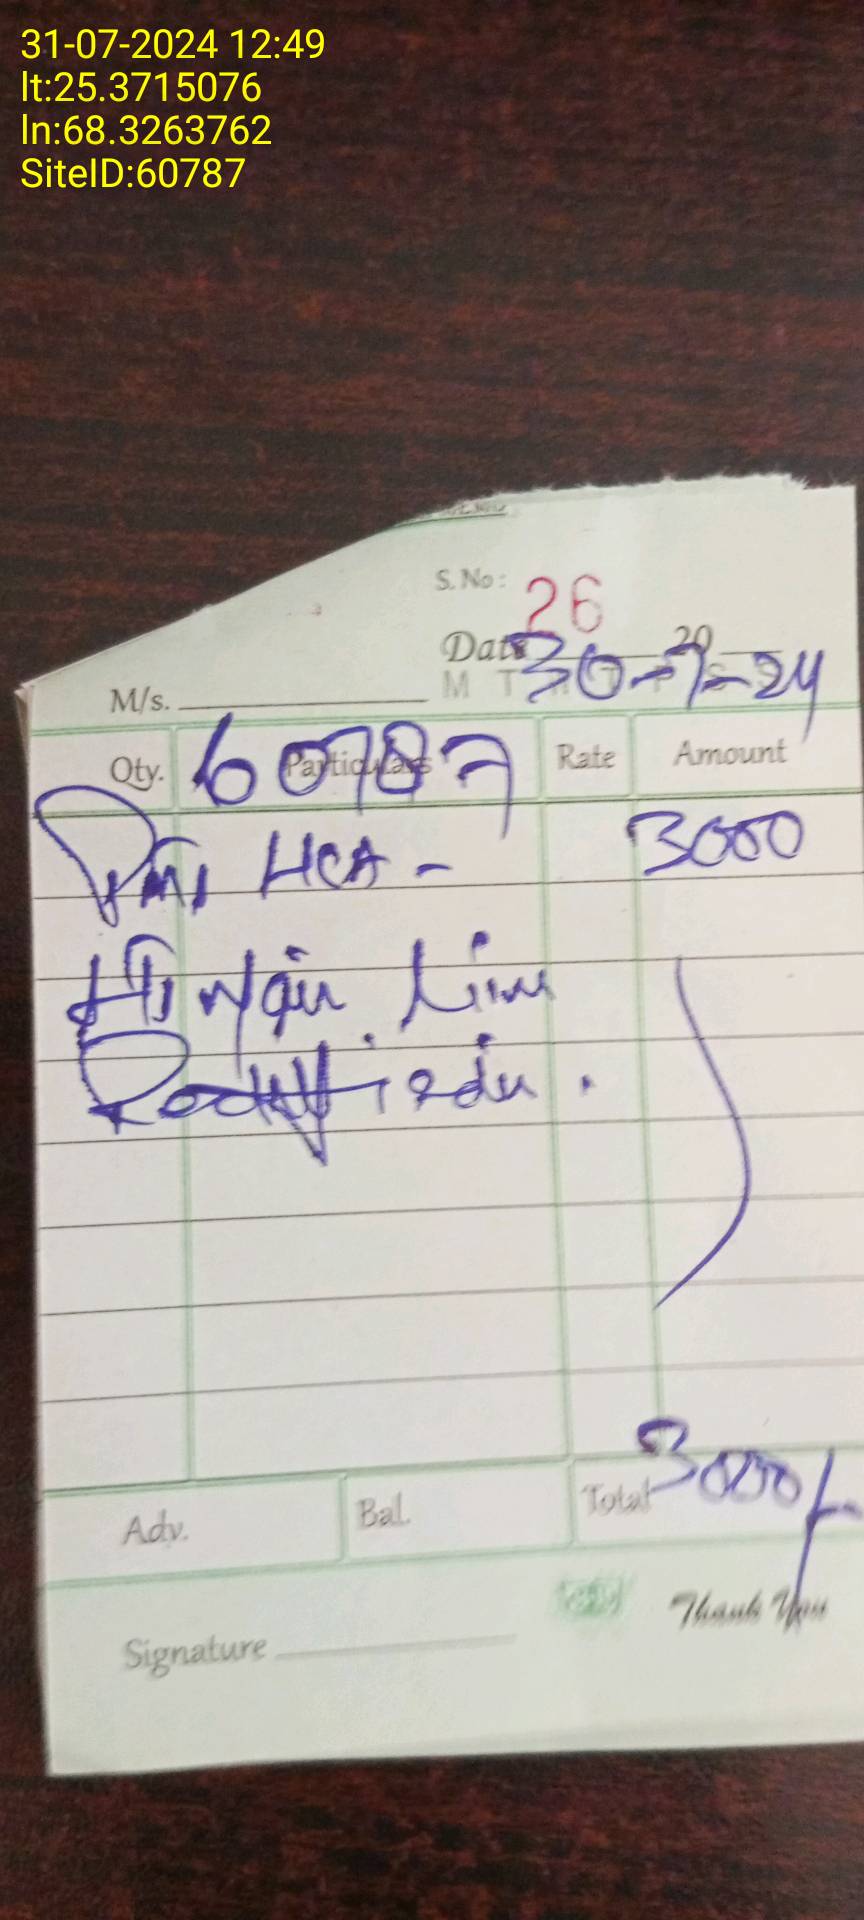 31-07-2024 12:49
lt:25.3715076
ln:68.3263762
SiteID:60787
S.No: 26
Date 20
30-7-24
M/s.
Qty. Particulars Rate Amount
60787
HCA - 3000
Adv. Bal. Total 3000/-
Signature
Thank You